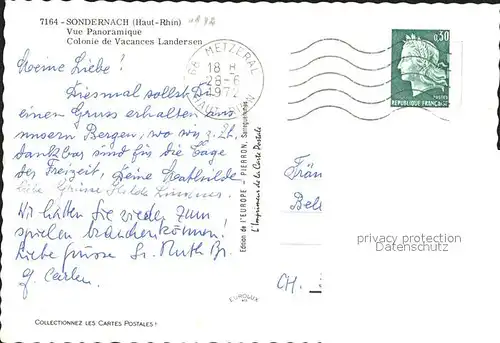 7164 - SONDERNACH (Haut-Rhin)
Vue Panoramique
Colonie de Vacances Landersen
68 METZERAL
18 H
28-6
1972
HAUT-RHIN
0,30
POSTES
REPUBLIQUE FRANÇAISE
Meine Liebe!
Diesmal sollst Du
einen Gruss erhalten aus
unsern Bergen, wo wir z. Zt.
dankbar sind für die Tage
der Freizeit, Deine Mathilde
Liebe Grüsse Hilde
Wir hätten Sie wieder zum
spielen brauchen können.
Liebe Grüsse Sr. Ruth Br.
Edition de l'EUROPE - PIERRON, Sarreguemines
L'Imprimeur de la Carte Postale
EUROLUX
Frän
Bel
CH.
privacy protection
Datenschutz
COLLECTIONNEZ LES CARTES POSTALES !